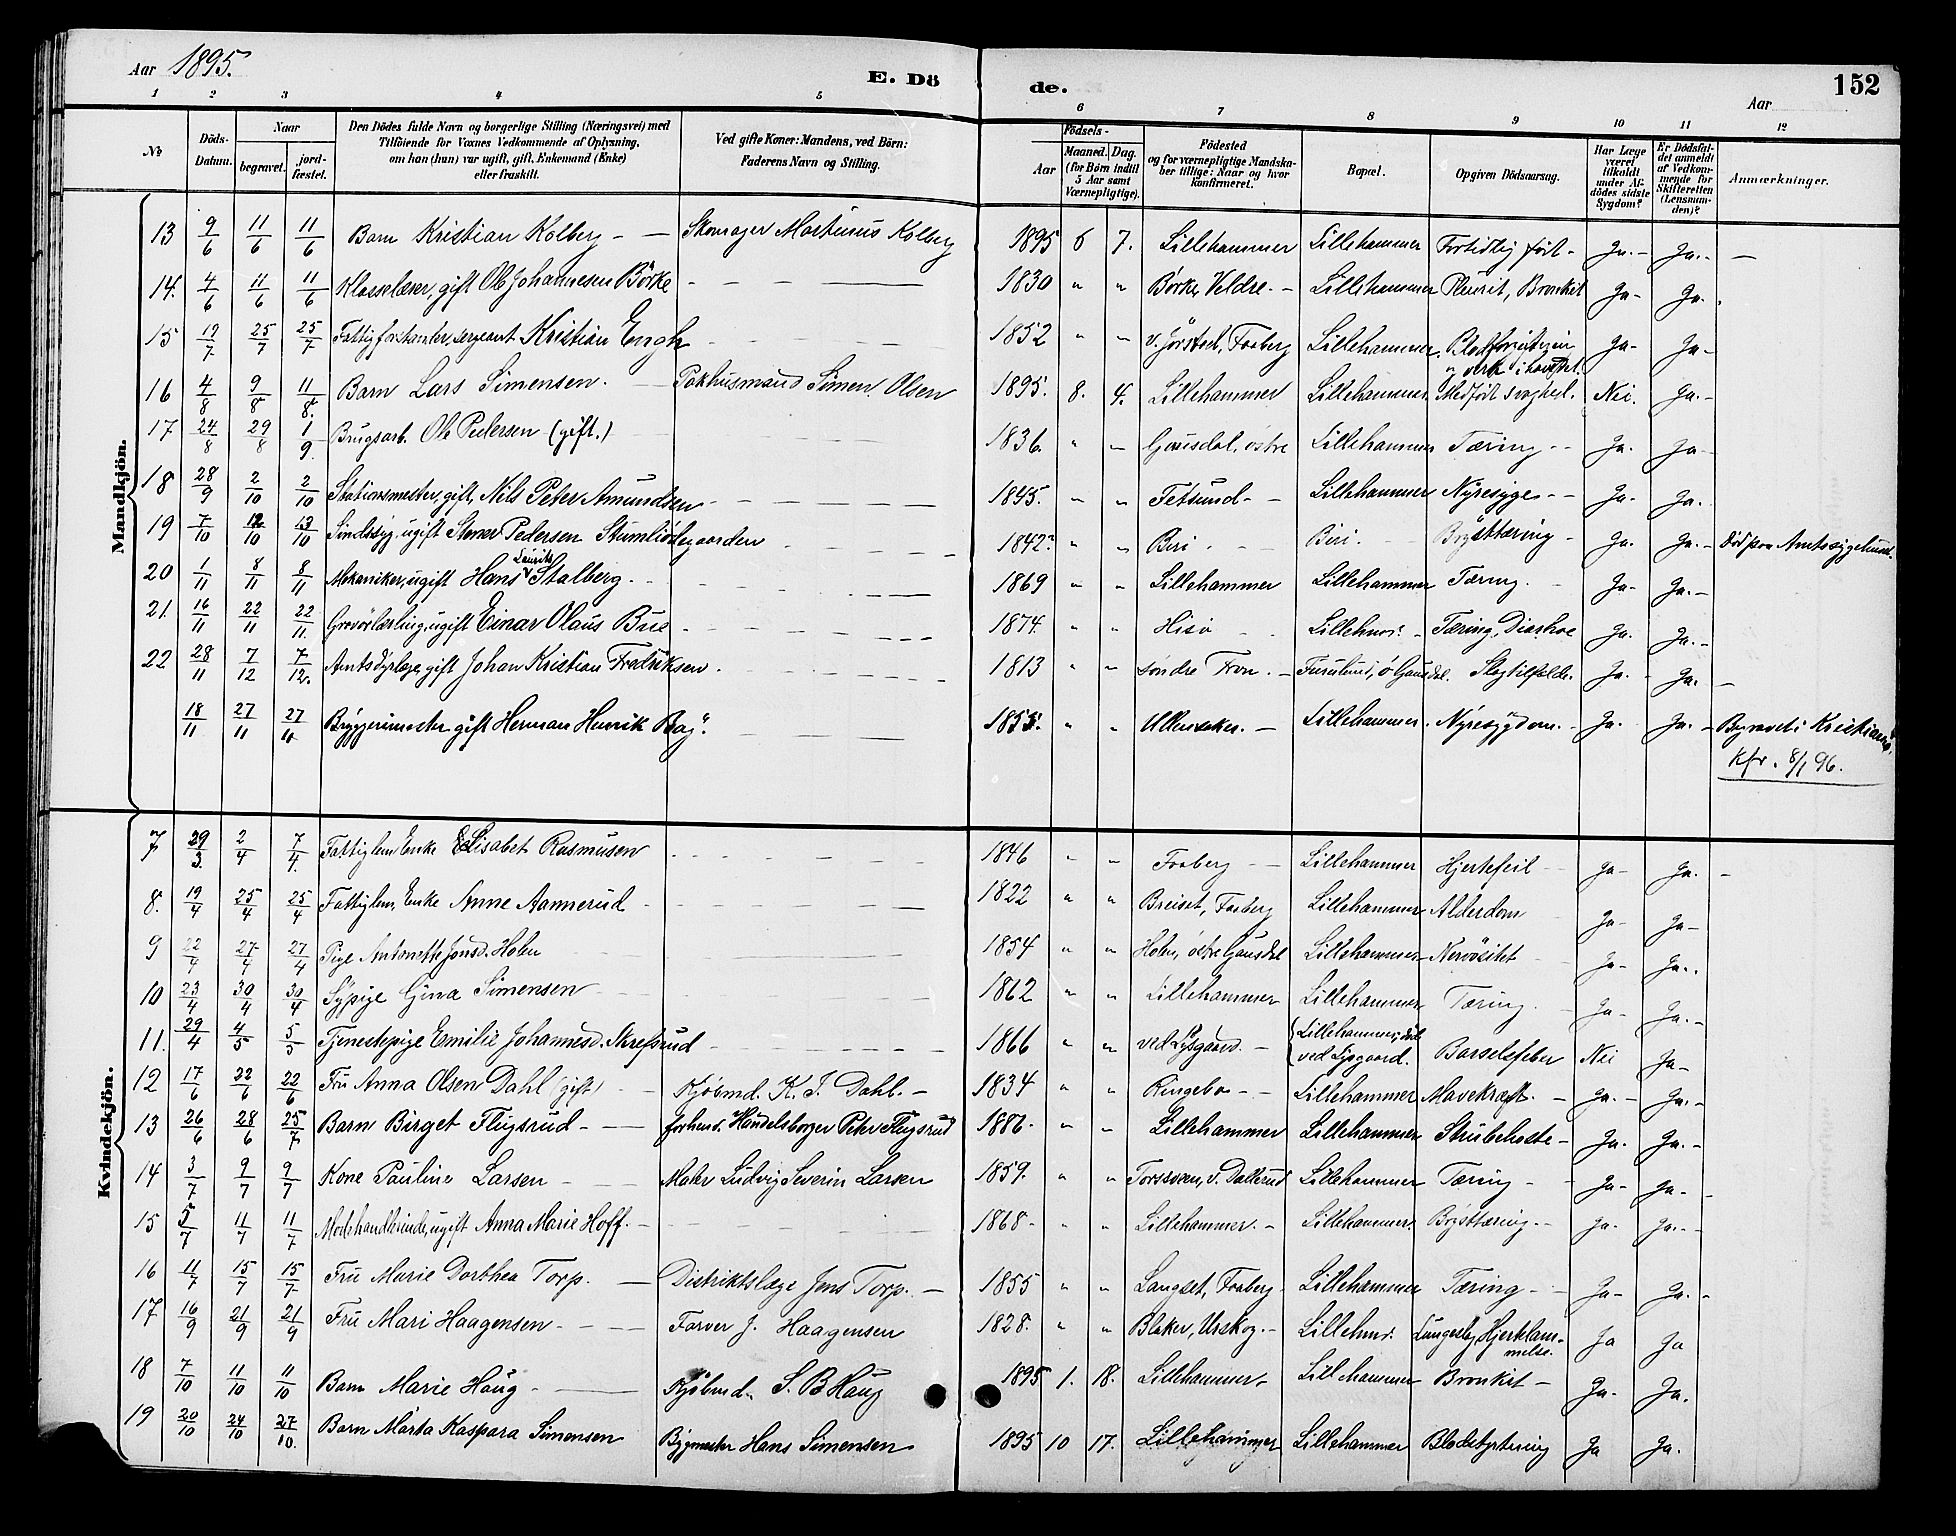 Aar 1895.
E. Dö
de.
Aar
152
1 2 3 4 5 6 7 8 9 10 11 12
№
Döds-Datum.
Naar
begravet.
jord-fæstet.
Den Dödes fulde Navn og borgerlige Stilling (Næringsvei) med
Tilföiende for Voxnes Vedkommende af Oplysning,
om han (hun) var ugift, gift, Enkemand (Enke)
eller fraskilt.
Ved gifte Koner: Mandens, ved Börn:
Faderens Navn og Stilling.
Födsels-
Aar
Maaned. Dag.
(for Börn indtil
5 Aar samt
Værnepligtige).
Födested
og for værnepligtige Mandska-
ber tillige: Naar og hvor
konfirmeret.
Bopæl.
Opgiven Dödsaarsag.
Har Læge
været
tilkaldt
under Af-
dödes sidste
Sygdom?
Er Dödsfal-
det anmeldt
af Vedkom-
mende for
Skifteretten
(Lensman-
den)?
Anmærkninger.
Mandkjön.
13 9/6 11/6 11/6 Barn Kristian Kolberg - — Skomager Martinus Kolberg 1895 6 7. Lillehammer Lillehammer Fortidlig född - Ja. - Ja. - —
14. 4/6 11/6 11/6 Klasselæser, gift Ole Johannesen Börke 1830 " " Börke, Veldre. - Lillehammer Pleurit, Bronkit Ja - Ja.
15 19/7 25/7 25/7 Fattigforstander, sergeant Kristian Engh 1852 " " v. Jörstad, Faaberg Lillehammer. Blodforgiftning
i hovedet. Ja - Ja -
16 4/8 9/8 11/8. Barn Lars Simensen. Pakhusmand Simen Olsen 1895. 8. 4. Lillehammer Lillehammer Medfödt svaghed. Nei. Ja. -
17. 24/8 29/8 1/9. Brugsarb. Ole Pedersen (gift.) 1836. " " Gausdal, östre Lillehammer Tæring - - Ja. Ja -
18 28/9 2/10 2/10 Stationsmester, gift, Nils Peter Amundsen 1845. " " Fetsund - - Lillehammer Nyresyge - - Ja - Ja.
19 7/10 12/10 13/10 Sindssyg, ugift Pedersen 1842. " " Biri Biri. Brysttæring - Ja. Ja. - Död paa Amtssygehuset.
20 1/11 8/11 8/11 Mekaniker, ugift Hans Laurits Stalberg. 1869 " " Lillehammer Lillehammer Tæring. - Ja - Ja. -
21. 16/11 22/11 22/11. Gravörlærling, ugift Einar Olaus Bue 1874. " " Hisö Lillehmr. - Tæring, Diarhoe Ja. Ja. -
22 28/11 7/12 7/12. Amtsdyrlæge, gift Johan Kristian Fredriksen 1813 " " söndre Fron. - Furulund, ö Gausdal. Slagtilfælde. Ja. - Ja. —
18/11 27/11 27/11 Bryggerimester gift Herman Henrik Bay. 1855. " " Ullensaker. - Lillehammer. Nyresygdom. - Ja. Ja. - Begravet i Kristiania,
kfr. 8/1 96.
Kvindekjön.
7 29/3. 2/4 7/4. Fattiglem Enke Elisabet Rasmusen 1846 " " Faaberg - - Lillehammer Hjertefeil - Ja - Ja. -
8. 19/4 25/4 25/4 Fattiglem, Enke Anne Aannerud 1822 " " Breiset, Faaberg Lillehammer Alderdom Ja - Ja -
9 22/4 27/4 27/4 Pige Antonette Jonsd. Holen 1854 " " Holen, östre Gausdal Lillehammer Nervösitet Ja - Ja.
10 23/4 30/4 30/4 Sypige Gina Simensen 1862 " " Lillehammer Lillehammer Tæring. Ja - Ja. -
11. 29/4 4/5 5/5 Tjenestepige Emilie Johannesd. Skrefsrud 1866 " " ved Lysgaard. - Lillehammer, död
ved Lysgaard. Barselfeber Nei Ja -
12 17/6 22/6 22/6 Fru Anna Olsen Dahl (gift) Kjöbmd. K. J. Dahl. - 1834 " " Ringebo - - Lillehammer Mavekræft. - Ja. - Ja. -
13 26/6 28/6 25/7 Barn Birget Flugsrud - — forhenv. Handelsborger Peter Flugsrud 1886. " " Lillehammer Lillehammer Strubehoste - Ja. Ja. -
14 3/7 9/7 9/7 Kone Pauline Larsen Maler Ludvig Severin Larsen 1859. " " v. Dallerud Lillehammer Tæring - - Ja - Ja. -
15 5/7 11/7 11/7 Modehandlerinde, ugift Anna Marie Hoff. 1868. " " Lillehammer. - Lillehammer. Brysttæring. - Ja. Ja. -
16 11/7 15/7 15/7 Fru Marie Dorthea Torp. — Distriktslæge Jens Torp. - 1855 " " Langset, Faaberg Lillehammer Tæring - - Ja - Ja. -
17 16/9 21/9 21/9 Fru Mari Haagensen - - — Farver J. Haagensen 1828. " " Blaker, Urskog. - Lillehmr. Lungesyg, Hjertelam-
melse. Ja Ja
18 7/10 11/10 11/10 Barn Marie Haug - — Kjöbmd. S. B Haug 1895 1. 18. Lillehammer - Lillehammer Bronkit - Ja. Ja.
19 20/10 24/10 27/10. Barn Marta Kaspara Simensen Bygmester Hans Simensen 1895 10 17. Lillehammer Lillehammer Blodstyrtning Ja Ja.